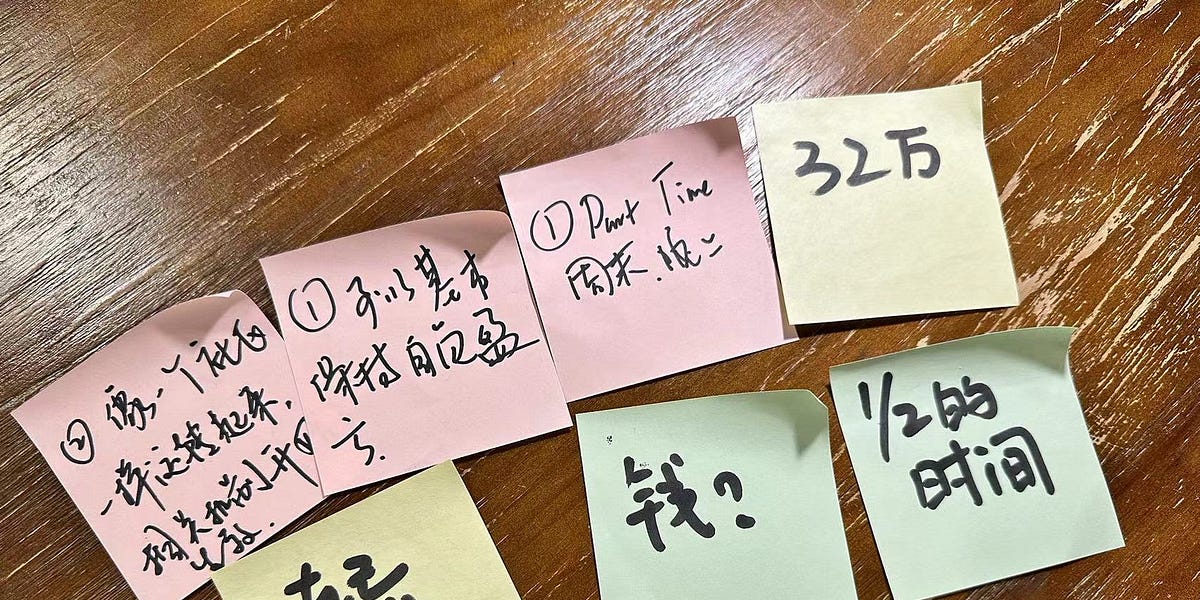 ② 像一个社区
一样运转起来,
相关机制开
① 可以基本
保持自己盈
亏.
① Part Time
周末.晚上
32万
钱?
1/2的
时间